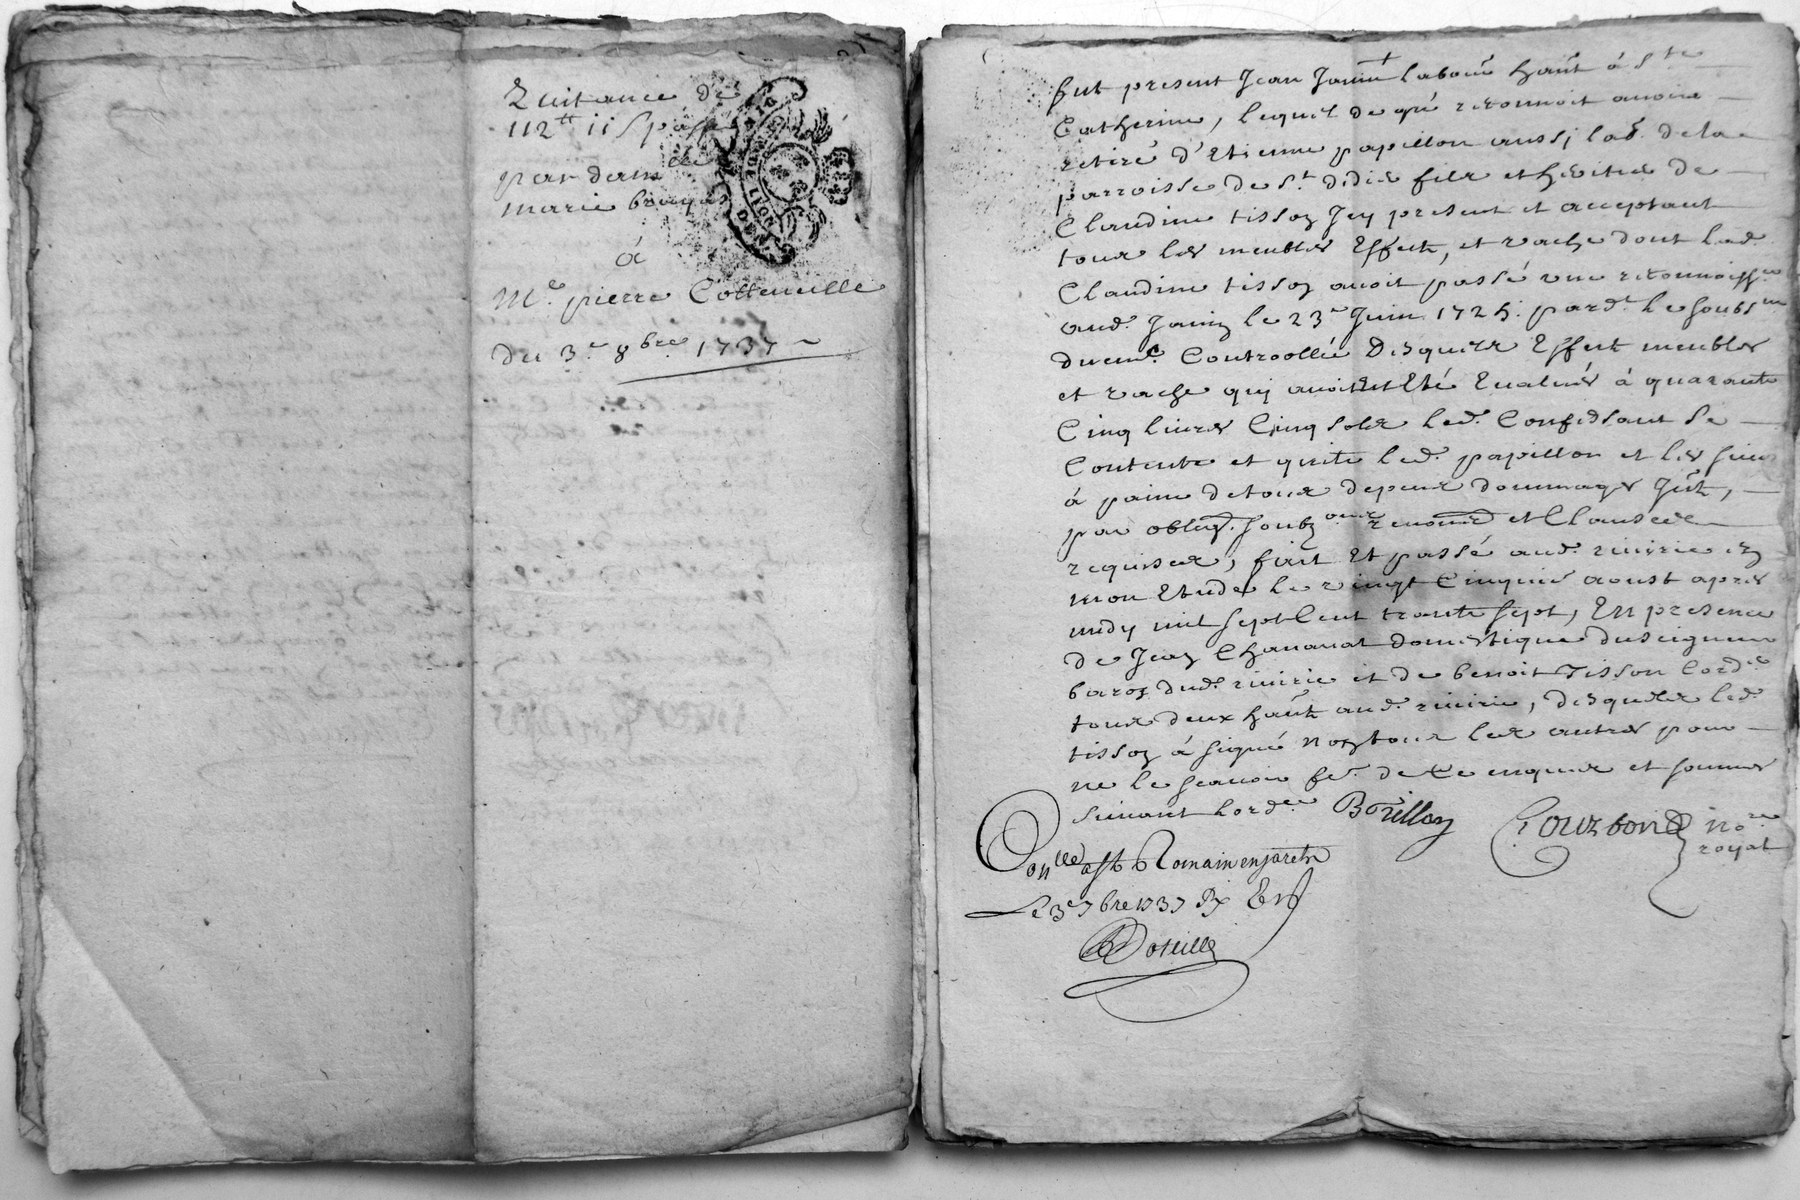 Quitance de
112tt 11s passé
par dam lle
marie bruyas
á
Me. pierre Cotteneille
du 3e. 8bre. 1737
fut present Jean Janin labour habt á Ste
Catherine, lequel de gré reconnoit auoir
retiré d'Etienne papillon aussi lab. de la
parroisse de St. didier fils et heritier de
Claudine tisson Icy present et acceptant
tous les meubles Effects, et vache dont lad.
Claudine tisson auoit passé une reconnoissce
aud. Janin le 23e Juin 1725. pardt. le soubsne
duemt. Controollée Desquels Effects meubles
et vache quj auoient Eté Eualués á quarante
Cinq liures Cinq sols led. Confessant se
Contente et quite led. papillon et les siens
á paine de tous depens dommages Jnts,
par oblign. soubzons renons et Clauses
requises, fait Et passé aud. riuirie en
mon Etude le vingt Cinquie aoust apres
midy mil sept Cent trante sept, En presence
de Jean Chanauat domestique du seigneur
baron dud. riuirie et de benoit Tisson Cordr
tous deux habts aud. riuirie, desquels led.
tisson á signé non tous les autres pour
ne le scauoir fe. de Ce enquis et sommés
suiuant lordce
Courbon nore
royal
Conlle a St Romain en jarets
Le 3e 7bre 1737 Rx